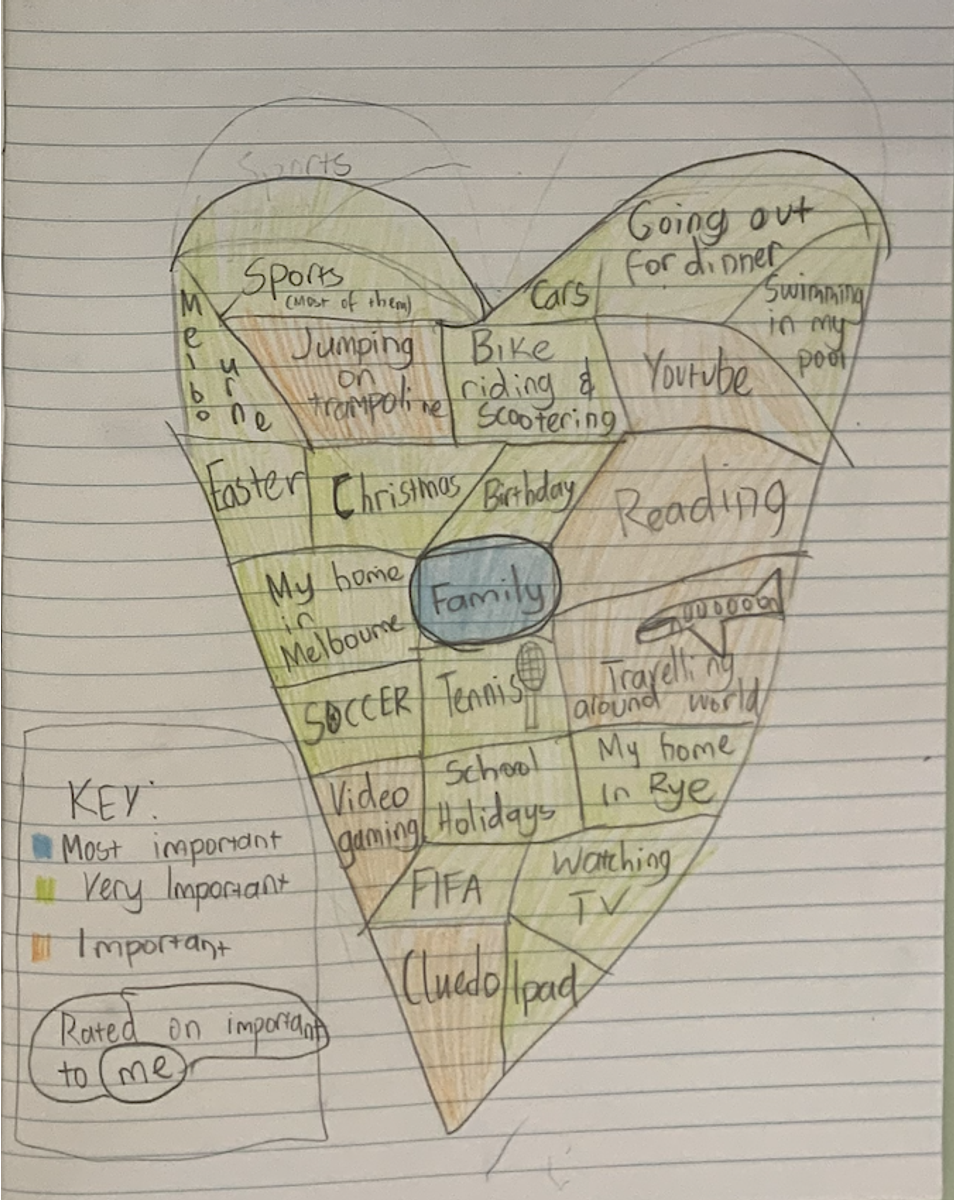 Sports
Sports
(Most of them)
Cars
Going out
for dinner
Swimming
in my
pool
Melbourne
Jumping
on
trampoline
Bike
riding &
Scootering
Youtube
Easter
Christmas
Birthday
Reading
My home
in
Melbourne
Family
SOCCER
Tennis
Travelling
around world
Video
gaming
School
Holidays
My home
in Rye
FIFA
Watching
TV
Cluedo
Ipad
KEY:
Most important
Very Important
Important
Rated on important
to me